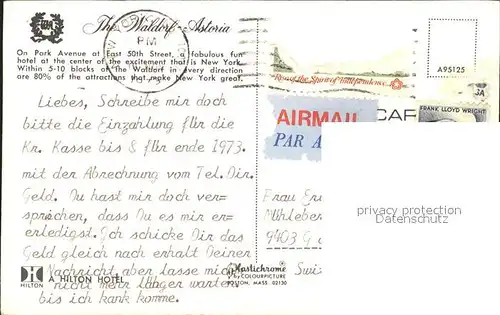 The Waldorf=Astoria
On Park Avenue at East 50th Street, a fabulous fun
hotel at the center of the excitement that is New York.
Within 5-10 blocks of the Waldorf in every direction
are 80% of the attractions that make New York great.
PM
A95125
Rise of the Spirit of Independence
FRANK LLOYD WRIGHT
AIRMAIL
PAR A
CAR
Liebes, Schreibe mir doch
bitte die Einzahlung für die
Kr. Kasse bis & für ende 1973.
mit der Abrechnung vom Tel. Dir.
Geld. Du hast mir doch ver-
sprochen, dass Du es mir er-
erledigst. Ich schicke Dir das
Geld gleich nach erhalt Deiner
Nachricht, aber lasse mich
nicht mehr länger warten,
bis ich kank komme.
Frau Er
Mühleber
9403 G
Swis
privacy protection
Datenschutz
HILTON
A HILTON HOTEL
Plastichrome
COLOURPICTURE
BOSTON, MASS. 02130